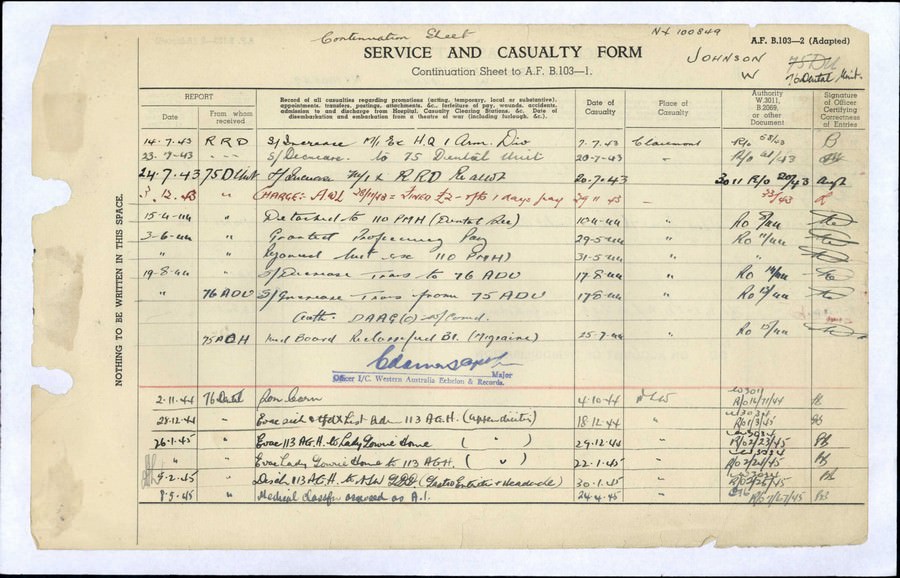 Continuation Sheet
NX 100849
A.F. B.103—2 (Adapted)
SERVICE AND CASUALTY FORM
JOHNSON
W
75 DU
76 Dental Unit.
Continuation Sheet to A.F. B.103—1.
NOTHING TO BE WRITTEN IN THIS SPACE.
REPORT
Date
From whom received
Record of all casualties regarding promotions (acting, temporary, local or substantive), appointments, transfers, postings, attachments, &c., forfeiture of pay, wounds, accidents, admission to and discharge from Hospital, Casualty Clearing Stations, &c. Date of disembarkation and embarkation from a theatre of war (including furlough, &c.).
Date of Casualty
Place of Casualty
Authority W.3011, B.2069, or other Document
Signature of Officer Certifying Correctness of Entries
14.7.43 RRD S/Increase M/I Ex H.Q 1 Arm. Div 7.7.43 Claremont R/o
23.7.43 S/Decrease to 75 Dental Unit 20.7.43 " R/o /43
24.7.43 75 D Unit S/Increase RRD 20.7.43 " R/o 20/43
12.43 " CHARGE:- AWL 28/11/43 = FINED £2 1 days pay 29 11 43 /43
15-4-44 " Detached to 110 PMH (Dental Sec) 10-4-44 " Ro /44
3-6-44 " Granted Proficiency Pay 29-5-44 " Ro 11/44
" " Rejoined Unit ex 110 PMH 31-5-44 " "
19-8-44 " S/Decrease Trans to 76 ADU 17-8-44 " Ro /44
" 76 ADU S/Increase Trans from 75 ADU 17-8-44 " Ro /44
Auth. DAAG(c)
75 ACH Med Board Reclassified B1. (Migraine) 25-7-44 " Ro 15/44
Major
Officer I/C. Western Australia Echelon & Records.
2.11.44 76 Dental 4.10.44 NSW W3011 R/O /71/44
28.12.44 " Evac sick & to X List Adm 113 A.G.H. (appendicitis) 18.12.44 " R/O/3/45
26.1.45 " Evac 113 A.G.H. to Lady Gowrie Home ( " ) 29.12.44 " R/O 2/23/45
" " Evac Lady Gowrie Home to 113 A.G.H. ( " ) 22.1.45 " R/O 2/24/45
9.2.45 " Disch 113 A.G.H. to NSW GDD (Gastro Enteritis & Headache) 30.1.45 " R/O2/25/45
8.5.45 " Medical Classfn assessed as A.1. 24.4.45 " R/O 7/67/45